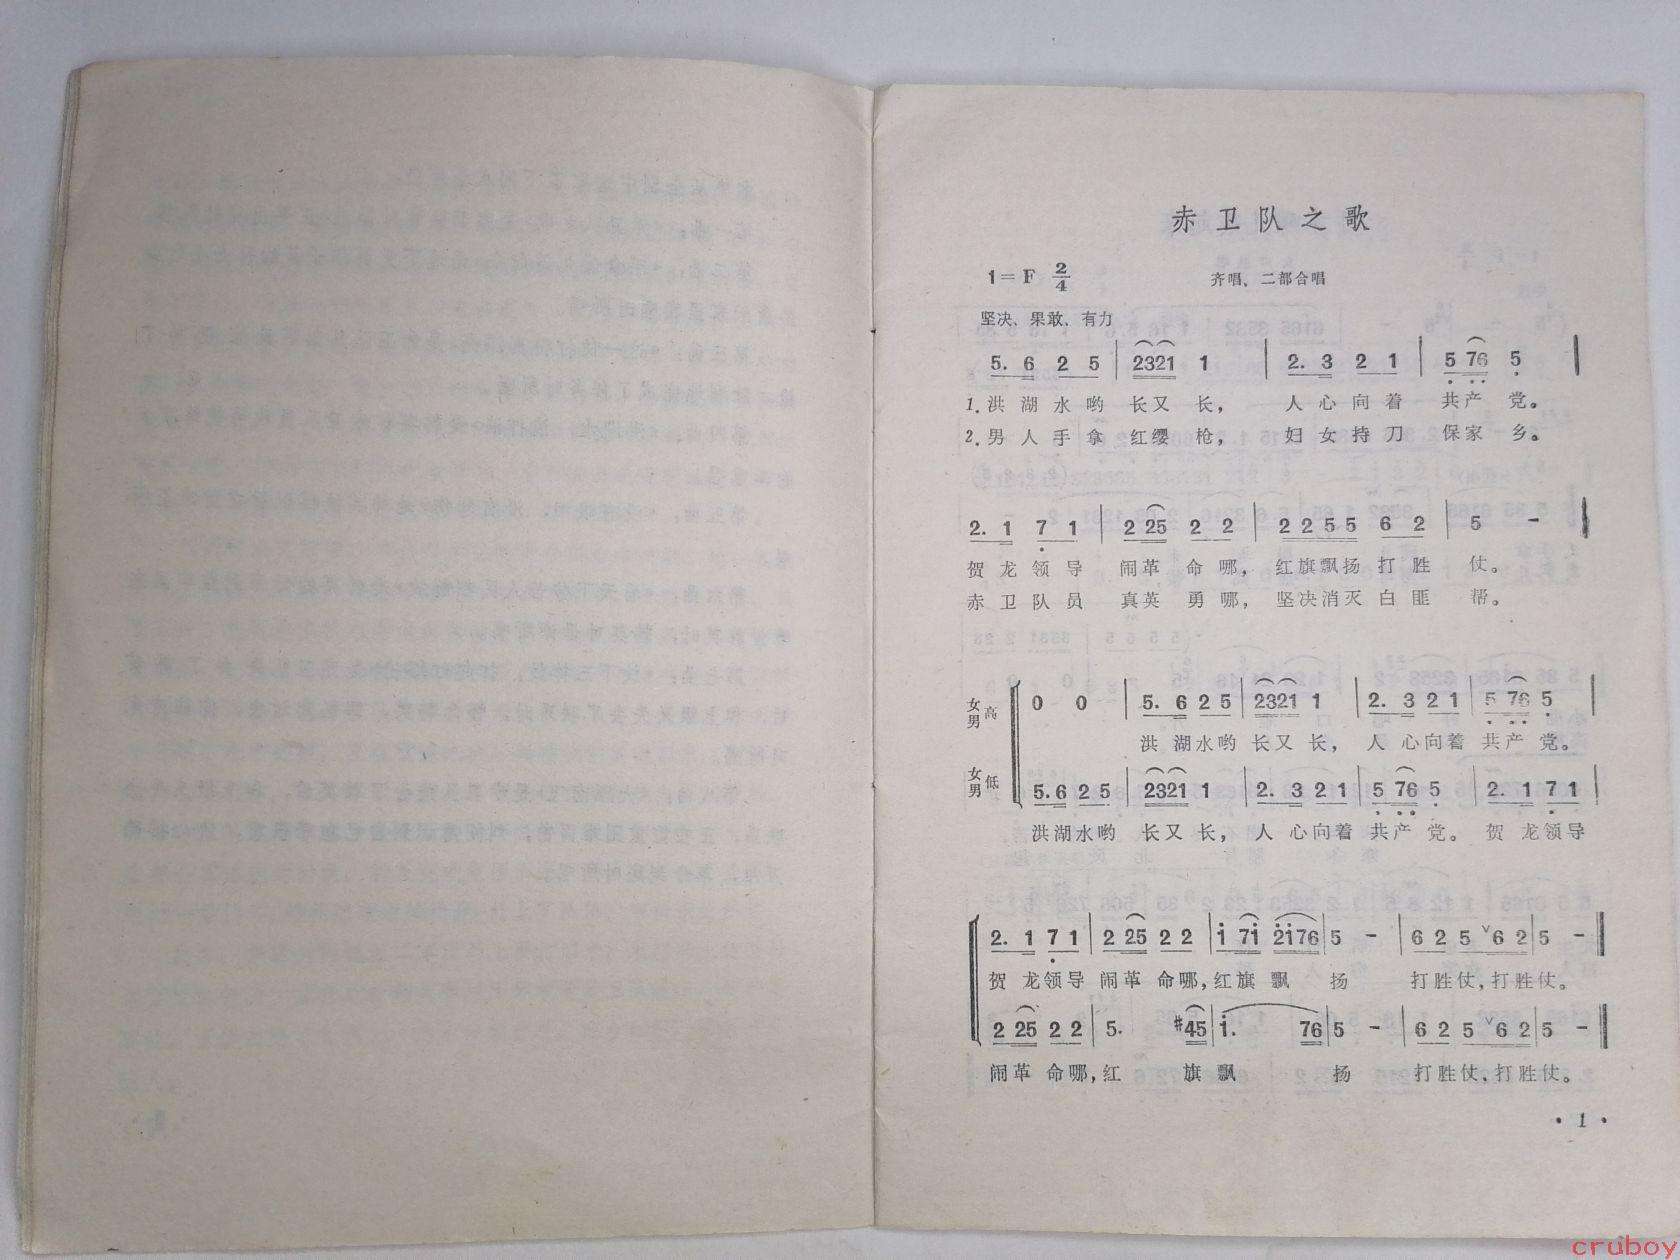 赤卫队之歌
1=F 2/4 齐唱、二部合唱
坚决、果敢、有力
5. 6 2 5 | 2321 1 | 2. 3 2 1 | 5 76 5 |
1. 洪湖水哟 长又长， 人心向着 共产党。
2. 男人手拿 红缨枪， 妇女持刀 保家乡。
2. 1 7 1 | 2 25 2 2 | 2 2 5 5 6 2 | 5 - |
贺龙领导 闹革命哪，红旗飘扬打胜仗。
赤卫队员 真英勇哪，坚决消灭白匪帮。
女男高 0 0 | 5. 6 2 5 | 2321 1 | 2. 3 2 1 | 5 76 5 |
洪湖水哟 长又长， 人心向着 共产党。
女男低 5. 6 2 5 | 2321 1 | 2. 3 2 1 | 5 76 5 | 2. 1 7 1 |
洪湖水哟 长又长， 人心向着 共产党。 贺龙领导
2. 1 7 1 | 2 25 2 2 | i 7i 2i76 | 5 - | 6 2 5 ∨ 6 2 | 5 - ‖
贺龙领导 闹革命哪，红旗飘 扬 打胜仗，打胜仗。
2 25 2 2 | 5. #45 | i. 76 | 5 - | 6 2 5 ∨ 6 2 | 5 - ‖
闹革命哪，红 旗飘 扬 打胜仗，打胜仗。
· 1 ·
cruboy